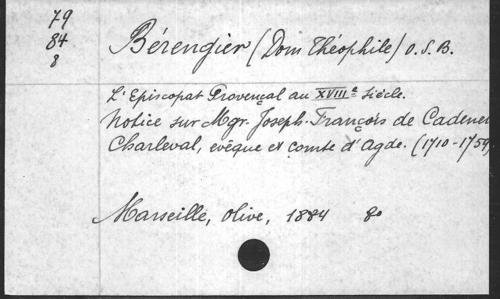 79
84
8
Bérengier (Dom Théophile) O.S.B.
L'Episcopat Provençal au XVIIIe Siècle.
Notice sur Mgr. Joseph-François de Cadenet
Charleval, evêque et comte d'Agde. (1710-1759)
Marseille, Olive, 1884 8o